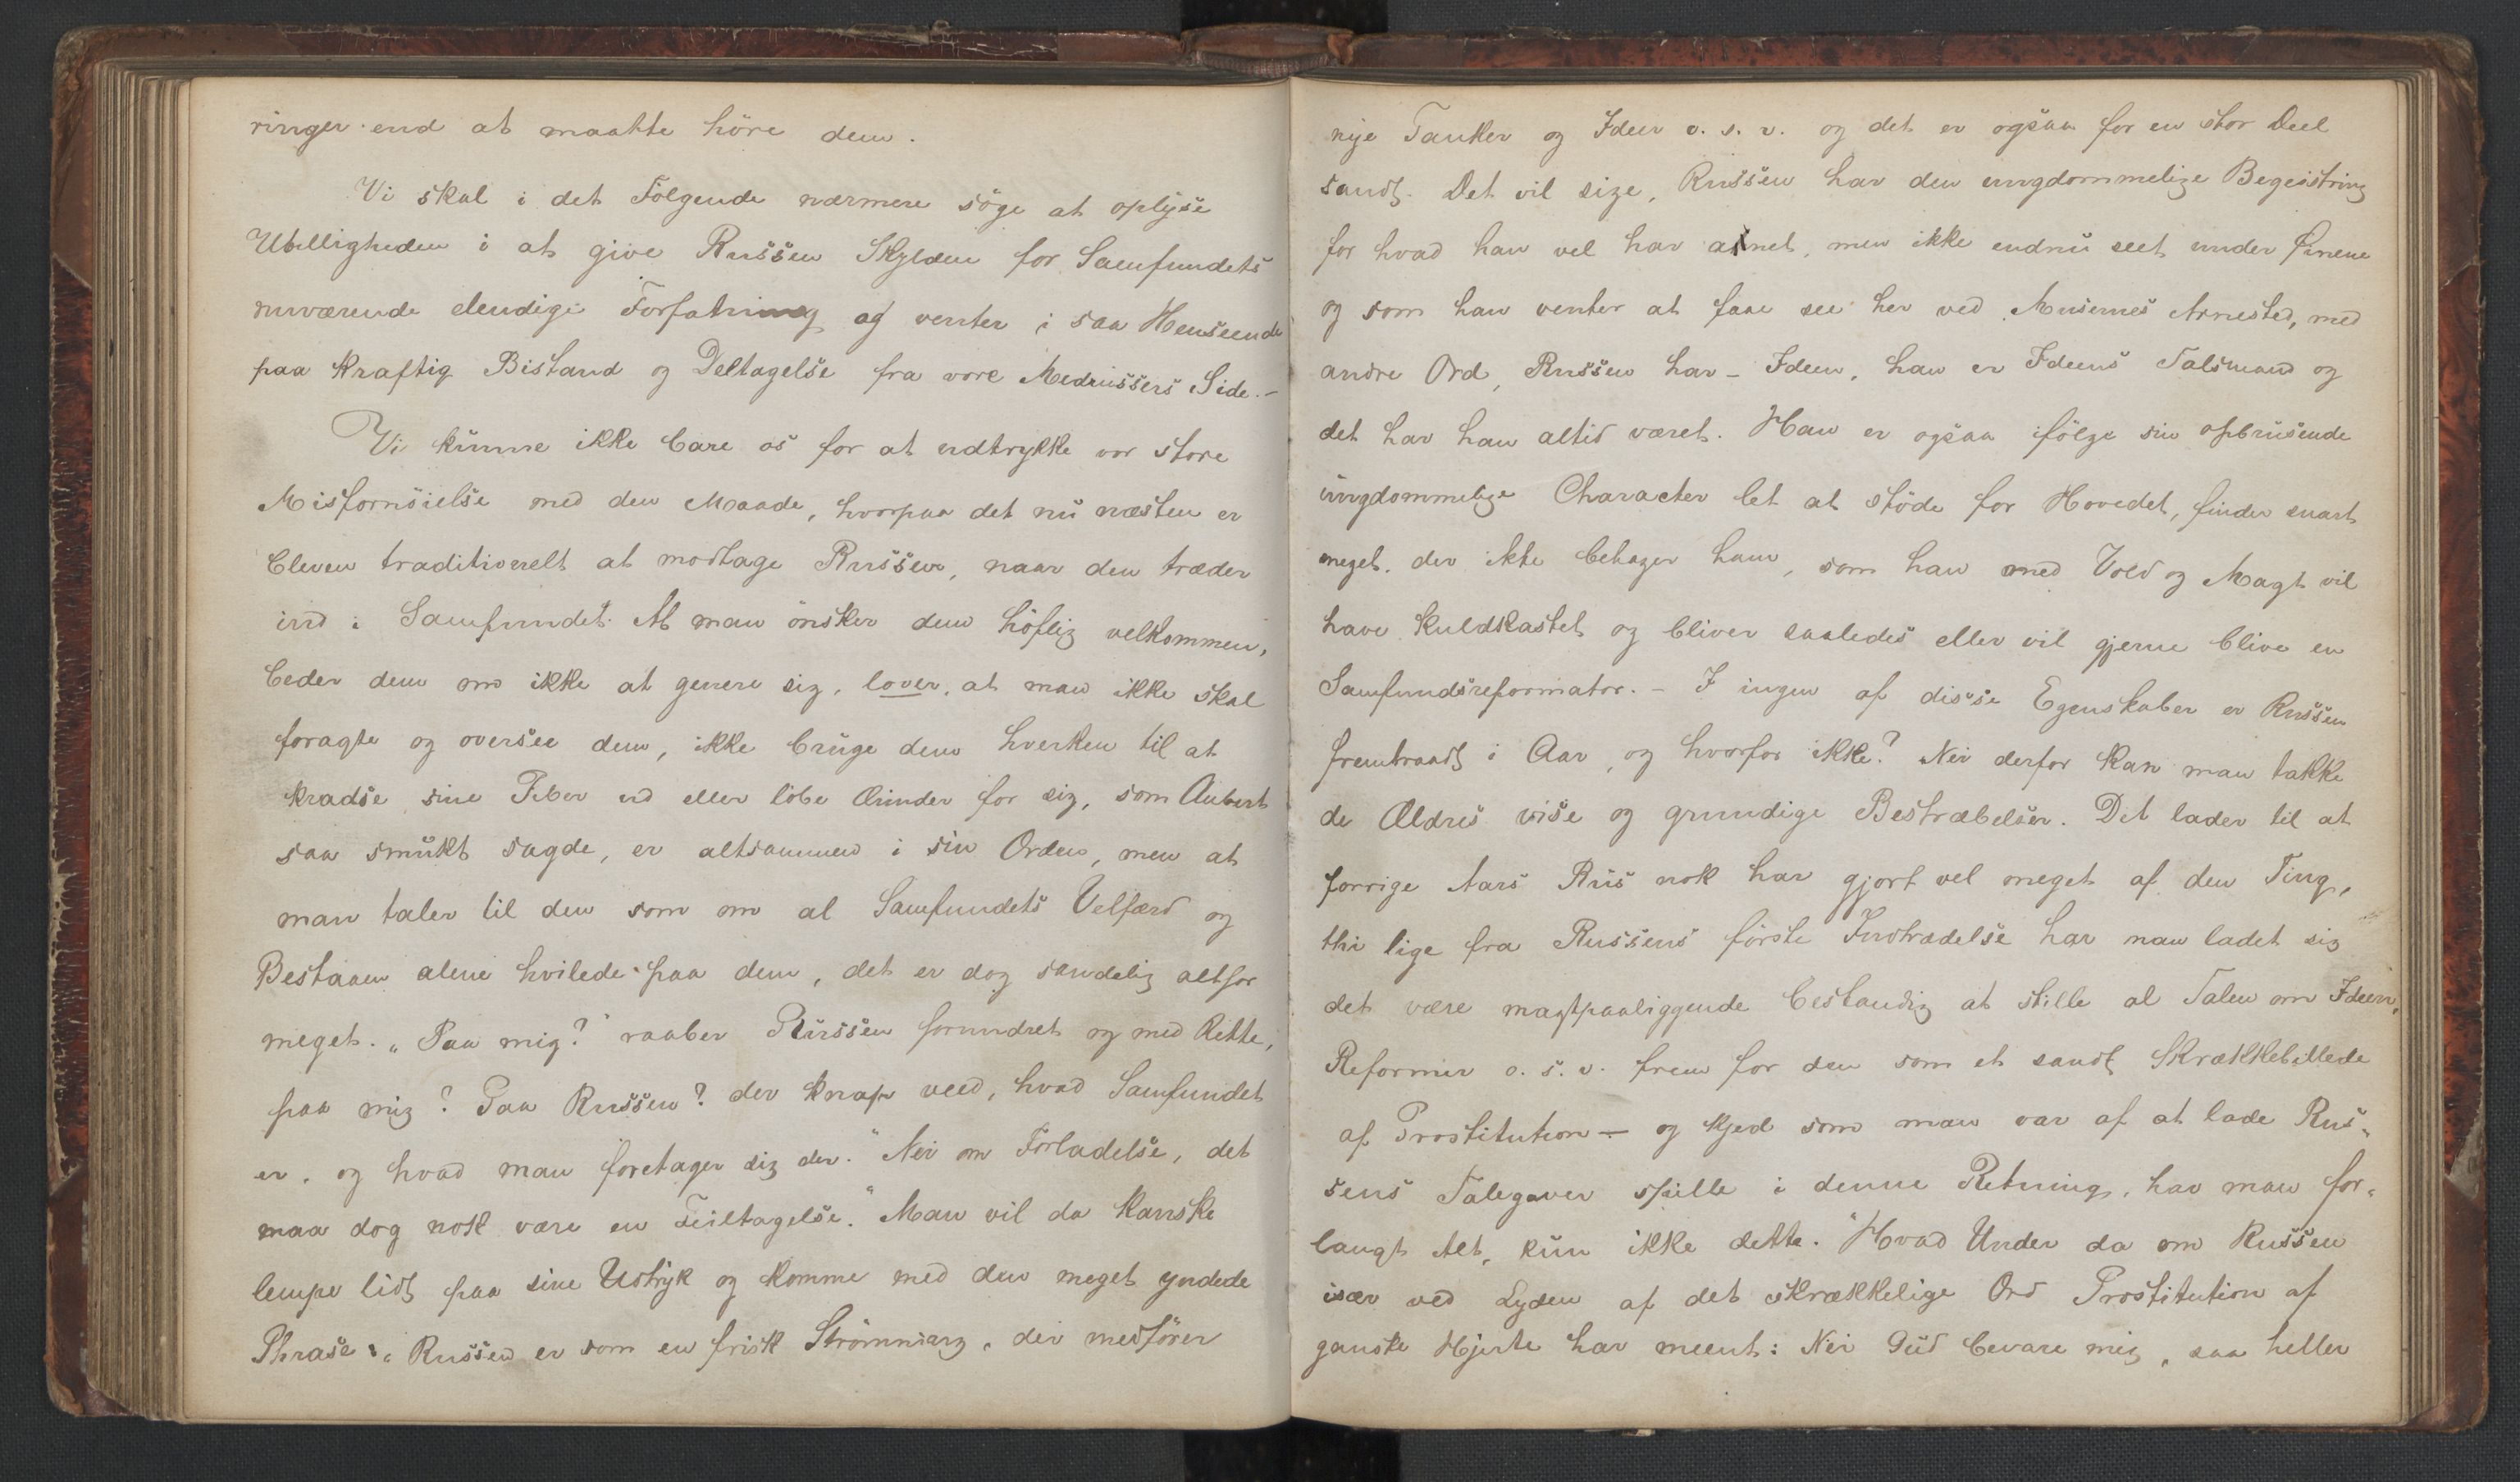 ringer end at maatte höre dem.
Vi skal i det Fölgende nærmere söge at oplyse
Ubilligheden i at give Russen Skylden for Samfundets
nuværende elendige Forfatning og venter i saa Henseende
paa kraftig Bistand og Deltagelse fra vore Medrussers Side.-
Vi kunne ikke bare os for at udtrykke vor store
Misfornöielse med den Maade, hvorpaa det nu næsten er
bleven traditionelt at modtage Russen, naar den træder
ind i Samfundet. At man önsker dem höflig velkommen,
beder dem om ikke at genere sig, lover, at man ikke skal
foragte og oversee dem, ikke bruge dem hverken til at
kradse sine Piber ud eller löbe Ærinder for sig, som Aubert
saa smukt sagde, er altsammen i sin Orden, men at
man taler til dem som om al Samfundets Velfærd og
Bestaaen alene hvilede paa dem, det er dog sandelig altfor
meget. „Paa mig?" raaber Russen forundret og med Rette,
paa mig? Paa Russen? der knap veed, hvad Samfundet
er, og hvad man foretager sig der." Nei om Forladelse, det
maa dog nok være en Feiltagelse." Man vil da kanske
lempe lidt paa sine Udtryk og komme med den meget yndede
Phrase: „Russen er som en frisk Strömning, der medförer
nye Tanker og Ideer o. s. v. og det er ogsaa for en stor Deel
sandt. Det vil sige, Russen har den ungdommelige Begeistring
for hvad han vel har a̶net, men ikke endnu seet under Öinene
og som han venter at faae see her ved Musernes Arnested, med
andre Ord, Russen har - Ideen, han er Ideens Talsmand og
det har han altid været. Han er ogsaa ifölge sin opbrusende
ungdommelige Character let at stöde for Hovedet, finder snart
meget, der ikke behager ham, som han med Vold og Magt vil
have kuldkastet og bliver saaledes eller vil gjerne blive en
Samfundsreformator. - I ingen af disse Egenskaber er Russen
fremtraadt i Aar, og hvorfor ikke? Nei derfor kan man takke
de Ældres vise og grundige Bestræbelser. Det lader til at
forrige Aars Rus nok har gjort vel meget af den Ting,
thi lige fra Russens förste Indtrædelse har man ladet sig
det være magtpaaliggende bestandig at stille al Talen om Ideen,
Reformer o. s. v. frem for dem som et sandt Skrækkebillede
af Prostitution — og kjed som man var af at lade Rus„
sens Talegaver spille i denne Retning, har man for„
langt Alt, kun ikke dette." Hvad Under da om Russen
især ved Lyden af det skrækkelige Ord Prostitution af
ganske Hjerte har meent: Nei Gud bevare mig, saa heller